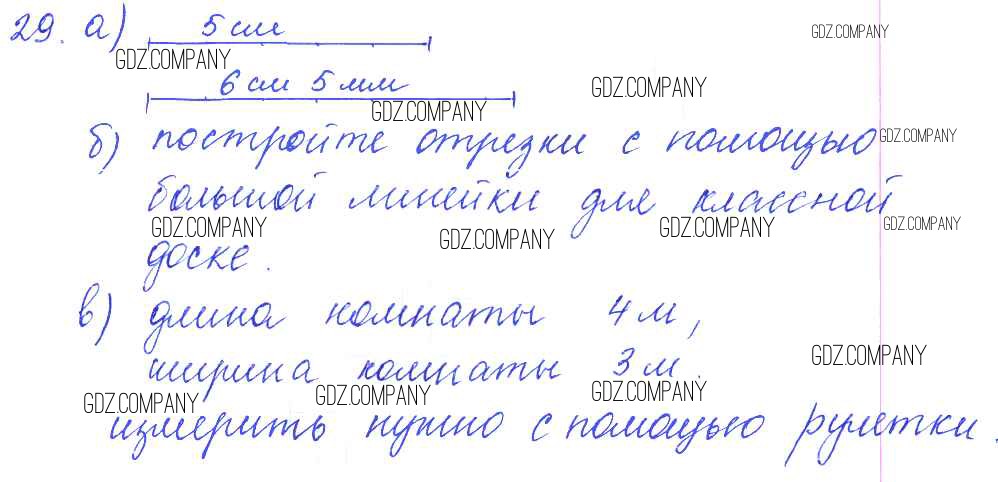 29. а) 5 см
GDZ.COMPANY
GDZ.COMPANY
6 см 5 мм
GDZ.COMPANY
GDZ.COMPANY
б) постройте отрезки с помощью
GDZ.COMPANY
большой линейки для классной
GDZ.COMPANY
GDZ.COMPANY
GDZ.COMPANY
GDZ.COMPANY
доске.
в) длина комнаты 4 м,
ширина комнаты 3 м.
GDZ.COMPANY
GDZ.COMPANY
GDZ.COMPANY
GDZ.COMPANY
измерить нужно с помощью рулетки.